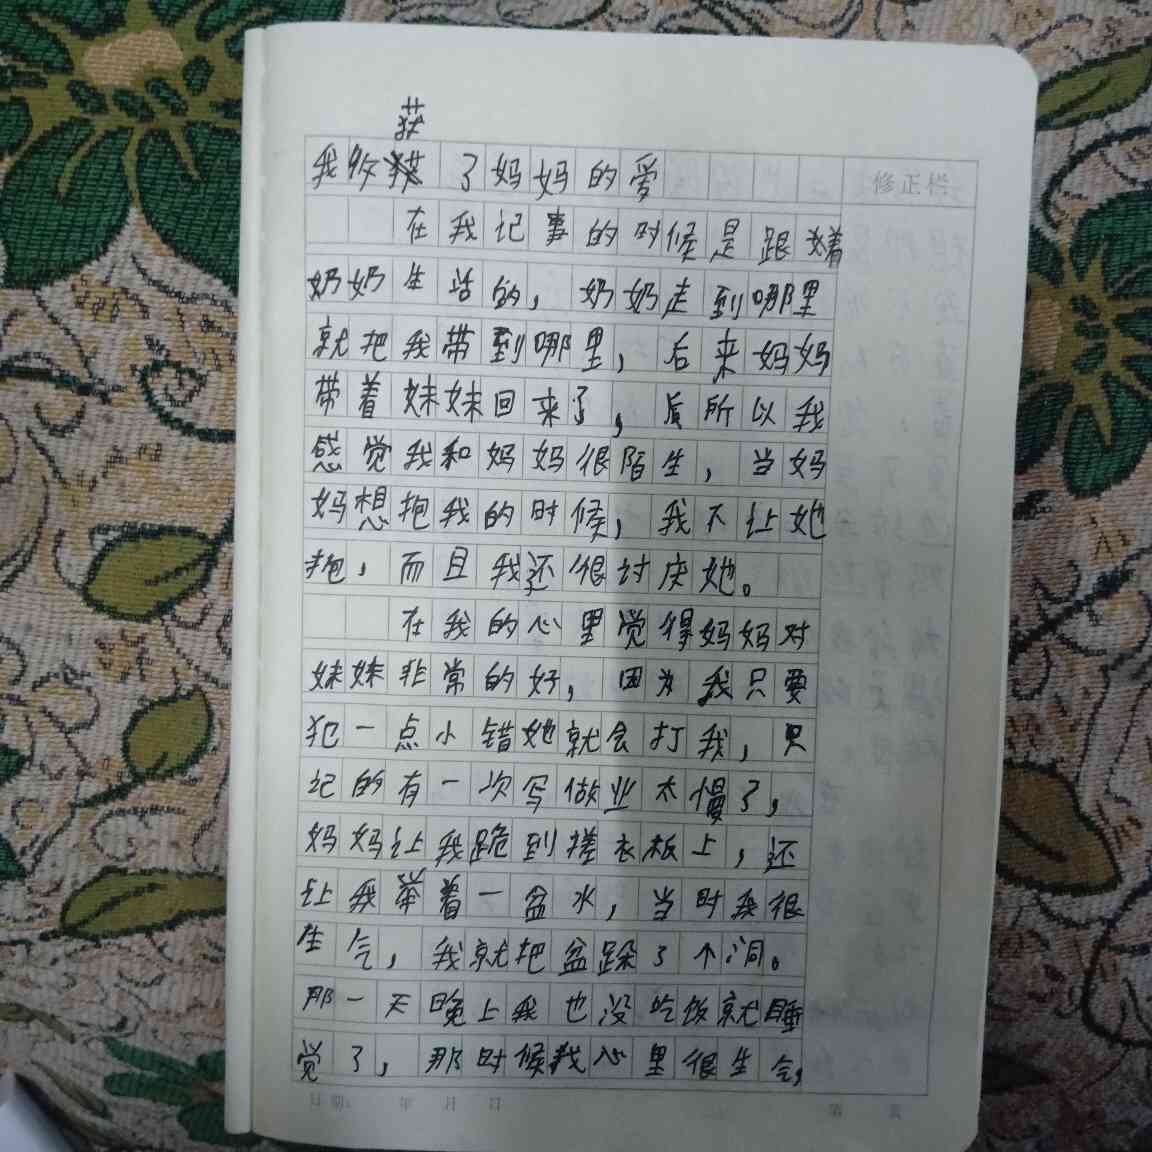 获
我收获了妈妈的爱
修正栏
在我记事的时候是跟着
奶奶生活的，奶奶走到哪里
就把我带到哪里，后来妈妈
带着妹妹回来了，所以我
感觉我和妈妈很陌生，当妈
妈想抱我的时候，我不让她
抱，而且我还很讨厌她。
在我的心里觉得妈妈对
妹妹非常的好，因为我只要
犯一点小错她就会打我，只
记的有一次写做业太慢了，
妈妈让我跪到搓衣板上，还
让我举着一盆水，当时我很
生气，我就把盆跺了个洞。
那一天晚上我也没吃饭就睡
觉了，那时候我心里很生气，
日期： 年 月 日 第 页